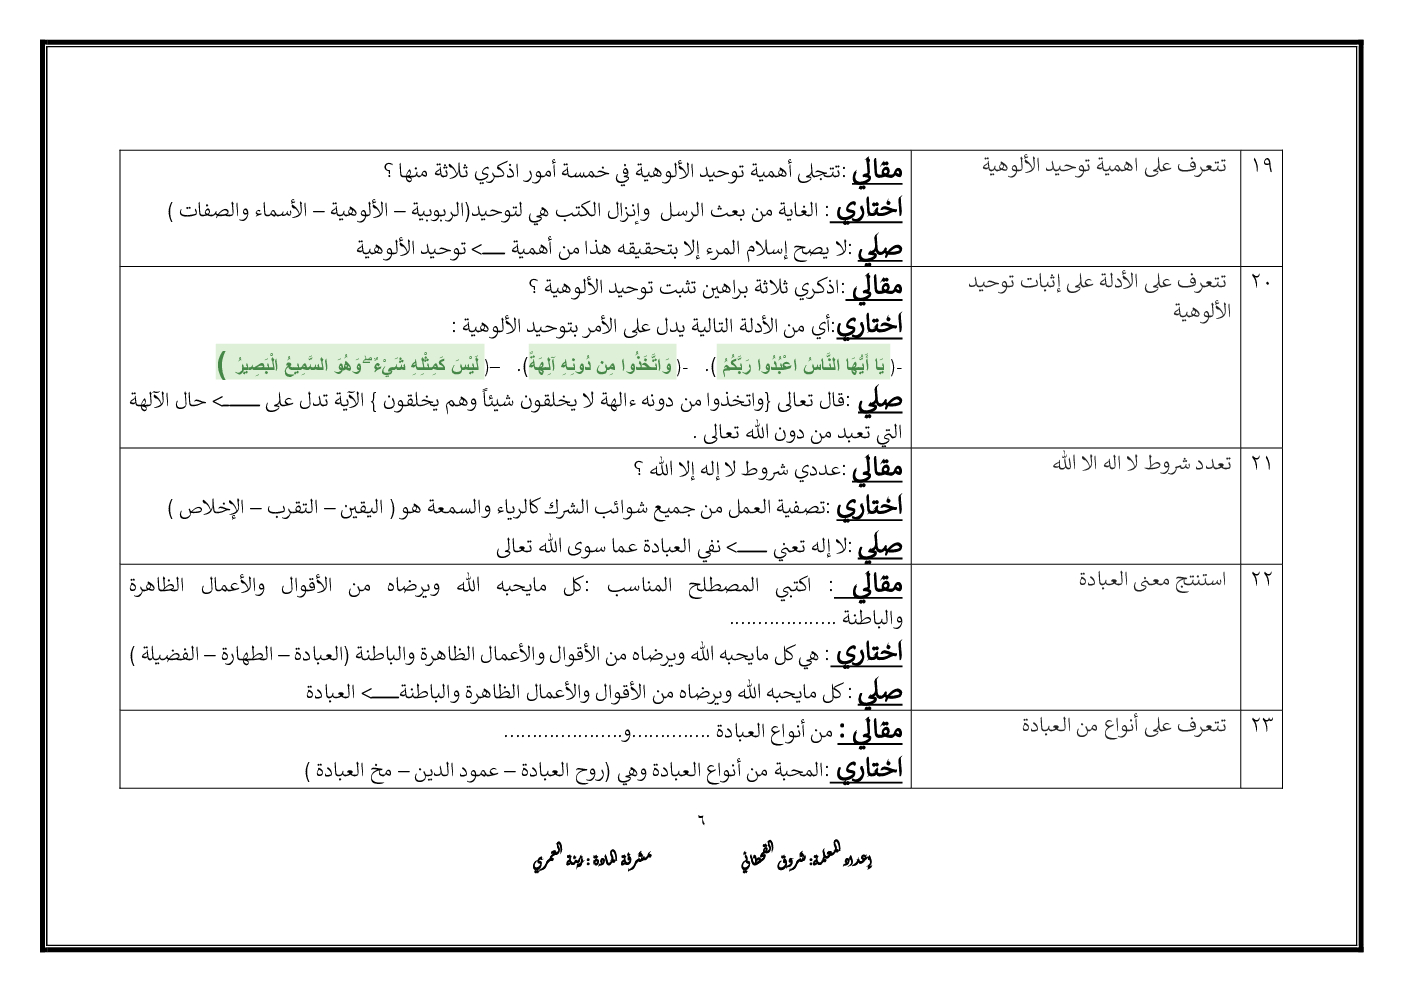 ١٩
تتعرف على اهمية توحيد الألوهية
مقالي :تتجلى أهمية توحيد الألوهية في خمسة أمور اذكري ثلاثة منها ؟
اختاري : الغاية من بعث الرسل وإنزال الكتب هي لتوحيد(الربوبية – الألوهية – الأسماء والصفات )
صلي :لا يصح إسلام المرء إلا بتحقيقه هذا من أهمية ــــ> توحيد الألوهية
٢٠
تتعرف على الأدلة على إثبات توحيد
الألوهية
مقالي :اذكري ثلاثة براهين تثبت توحيد الألوهية ؟
اختاري:أي من الأدلة التالية يدل على الأمر بتوحيد الألوهية :
-( يَا أَيُّهَا النَّاسُ اعْبُدُوا رَبَّكُمُ ). -( وَاتَّخَذُوا مِن دُونِهِ آلِهَةً). –( لَيْسَ كَمِثْلِهِ شَيْءٌ ۖ وَهُوَ السَّمِيعُ الْبَصِيرُ )
صلي :قال تعالى {واتخذوا من دونه ءالهة لا يخلقون شيئاً وهم يخلقون } الآية تدل على ـــــــ> حال الآلهة
التي تعبد من دون الله تعالى .
٢١
تعدد شروط لا اله الا الله
مقالي :عددي شروط لا إله إلا الله ؟
اختاري :تصفية العمل من جميع شوائب الشرك كالرياء والسمعة هو ( اليقين – التقرب – الإخلاص )
صلي :لا إله تعني ـــــ> نفي العبادة عما سوى الله تعالى
٢٢
استنتج معنى العبادة
مقالي : اكتبي المصطلح المناسب :كل مايحبه الله ويرضاه من الأقوال والأعمال الظاهرة
والباطنة ...................
اختاري : هي كل مايحبه الله ويرضاه من الأقوال والأعمال الظاهرة والباطنة (العبادة – الطهارة – الفضيلة )
صلي : كل مايحبه الله ويرضاه من الأقوال والأعمال الظاهرة والباطنةـــــ> العبادة
٢٣
تتعرف على أنواع من العبادة
مقالي : من أنواع العبادة ..............و.....................
اختاري :المحبة من أنواع العبادة وهي (روح العبادة – عمود الدين – مخ العبادة )
٦
إعداد المعلمة: شروق القحطاني مشرفة المادة : نبنة العمري